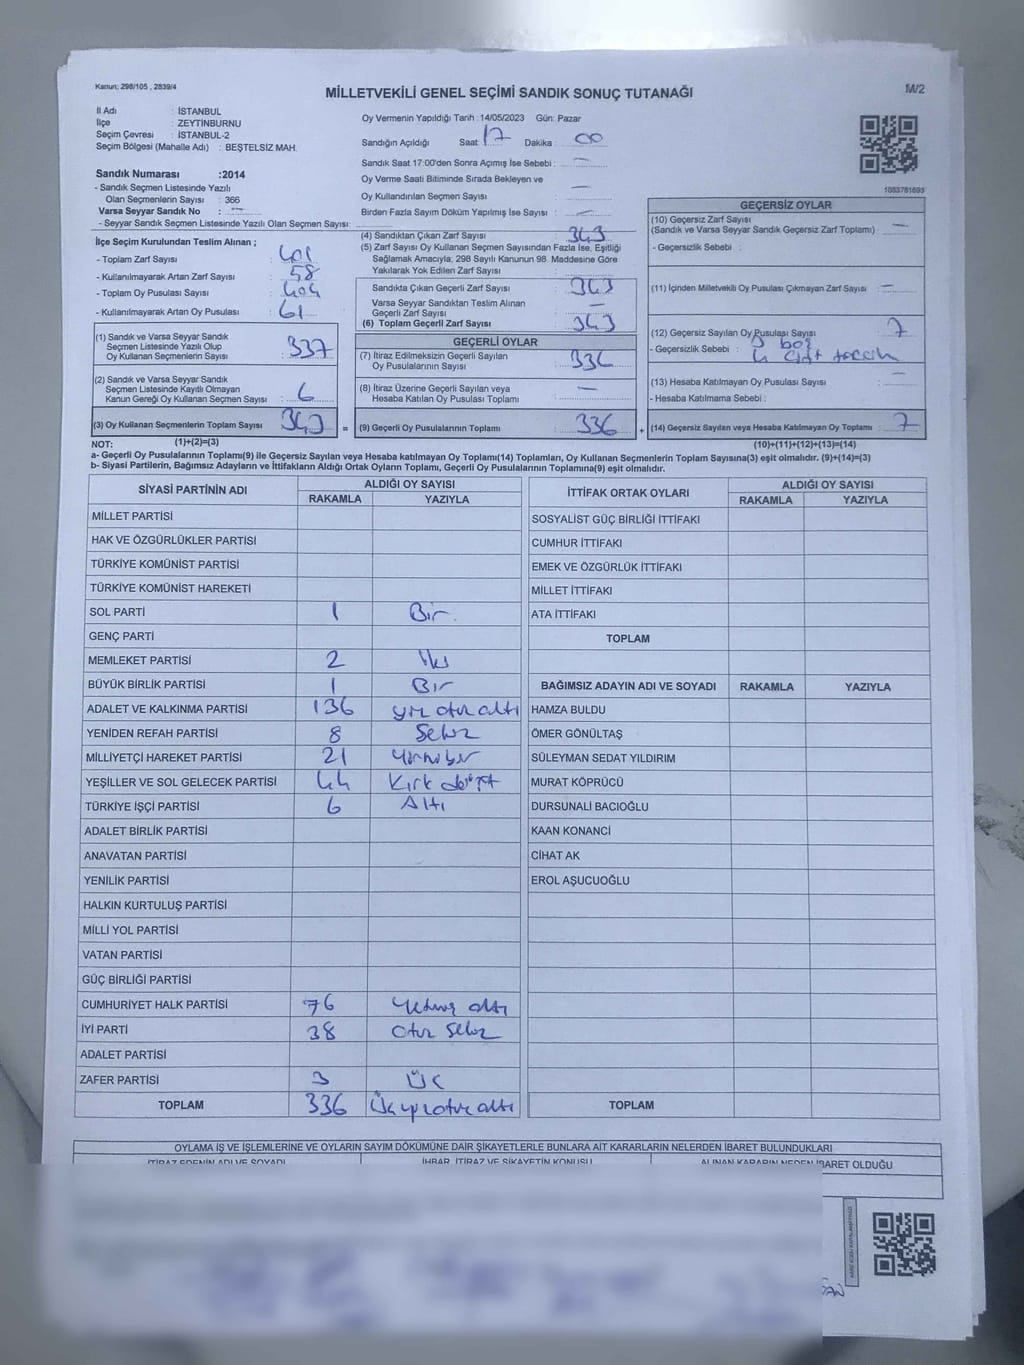 Kanun: 298/105 , 2839/4
MİLLETVEKİLİ GENEL SEÇİMİ SANDIK SONUÇ TUTANAĞI
M/2
İl Adı : İSTANBUL
İlçe : ZEYTİNBURNU
Seçim Çevresi : İSTANBUL-2
Seçim Bölgesi (Mahalle Adı) : BEŞTELSİZ MAH.
Sandık Numarası :2014
- Sandık Seçmen Listesinde Yazılı
Olan Seçmenlerin Sayısı : 366
Varsa Seyyar Sandık No : —
- Seyyar Sandık Seçmen Listesinde Yazılı Olan Seçmen Sayısı:
Oy Vermenin Yapıldığı Tarih :14/05/2023 Gün: Pazar
Sandığın Açıldığı Saat : 17 Dakika : 00
Sandık Saat 17:00'den Sonra Açımış İse Sebebi : —
Oy Verme Saati Bitiminde Sırada Bekleyen ve
Oy Kullandırılan Seçmen Sayısı —
Birden Fazla Sayım Döküm Yapılmış İse Sayısı : —
1083781693
İlçe Seçim Kurulundan Teslim Alınan ;
- Toplam Zarf Sayısı : 401
- Kullanılmayarak Artan Zarf Sayısı : 58
- Toplam Oy Pusulası Sayısı : 404
- Kullanılmayarak Artan Oy Pusulası : 61
(1) Sandık ve Varsa Seyyar Sandık
Seçmen Listesinde Yazılı Olup
Oy Kullanan Seçmenlerin Sayısı : 337
(2) Sandık ve Varsa Seyyar Sandık
Seçmen Listesinde Kayıtlı Olmayan
Kanun Gereği Oy Kullanan Seçmen Sayısı : 6
(3) Oy Kullanan Seçmenlerin Toplam Sayısı : 343 =
(4) Sandıktan Çıkan Zarf Sayısı : 343
(5) Zarf Sayısı Oy Kullanan Seçmen Sayısından Fazla İse, Eşitliği
Sağlamak Amacıyla; 298 Sayılı Kanunun 98. Maddesine Göre
Yakılarak Yok Edilen Zarf Sayısı
Sandıkta Çıkan Geçerli Zarf Sayısı : 343
Varsa Seyyar Sandıktan Teslim Alınan
Geçerli Zarf Sayısı : —
(6) Toplam Geçerli Zarf Sayısı : 343
GEÇERLİ OYLAR
(7) İtiraz Edilmeksizin Geçerli Sayılan
Oy Pusulalarının Sayısı : 336
(8) İtiraz Üzerine Geçerli Sayılan veya
Hesaba Katılan Oy Pusulası Toplamı : —
(9) Geçerli Oy Pusulalarının Toplamı : 336 +
GEÇERSİZ OYLAR
(10) Geçersiz Zarf Sayısı
(Sandık ve Varsa Seyyar Sandık Geçersiz Zarf Toplamı) : —
- Geçersizlik Sebebi :
(11) İçinden Milletvekili Oy Pusulası Çıkmayan Zarf Sayısı : —
(12) Geçersiz Sayılan Oy Pusulası Sayısı : 7
- Geçersizlik Sebebi : 3 boş
4 çift tercih
(13) Hesaba Katılmayan Oy Pusulası Sayısı : —
- Hesaba Katılmama Sebebi :
(14) Geçersiz Sayılan veya Hesaba Katılmayan Oy Toplamı : 7
NOT: (1)+(2)=(3)
(10)+(11)+(12)+(13)=(14)
a- Geçerli Oy Pusulalarının Toplamı(9) ile Geçersiz Sayılan veya Hesaba katılmayan Oy Toplamı(14) Toplamları, Oy Kullanan Seçmenlerin Toplam Sayısına(3) eşit olmalıdır. (9)+(14)=(3)
b- Siyasi Partilerin, Bağımsız Adayların ve İttifakların Aldığı Ortak Oyların Toplamı, Geçerli Oy Pusulalarının Toplamına(9) eşit olmalıdır.
SİYASİ PARTİNİN ADI ALDIĞI OY SAYISI
RAKAMLA YAZIYLA
MİLLET PARTİSİ
HAK VE ÖZGÜRLÜKLER PARTİSİ
TÜRKİYE KOMÜNİST PARTİSİ
TÜRKİYE KOMÜNİST HAREKETİ
SOL PARTİ 1 Bir
GENÇ PARTİ
MEMLEKET PARTİSİ 2 İki
BÜYÜK BİRLİK PARTİSİ 1 Bir
ADALET VE KALKINMA PARTİSİ 136 yüz otuz altı
YENİDEN REFAH PARTİSİ 8 Sekiz
MİLLİYETÇİ HAREKET PARTİSİ 21 Yirmi bir
YEŞİLLER VE SOL GELECEK PARTİSİ 44 Kırk dört
TÜRKİYE İŞÇİ PARTİSİ 6 Altı
ADALET BİRLİK PARTİSİ
ANAVATAN PARTİSİ
YENİLİK PARTİSİ
HALKIN KURTULUŞ PARTİSİ
MİLLİ YOL PARTİSİ
VATAN PARTİSİ
GÜÇ BİRLİĞİ PARTİSİ
CUMHURİYET HALK PARTİSİ 76 Yetmiş altı
İYİ PARTİ 38 Otuz Sekiz
ADALET PARTİSİ
ZAFER PARTİSİ 3 Üç
TOPLAM 336 Üçyüzotuzaltı
İTTİFAK ORTAK OYLARI ALDIĞI OY SAYISI
RAKAMLA YAZIYLA
SOSYALİST GÜÇ BİRLİĞİ İTTİFAKI
CUMHUR İTTİFAKI
EMEK VE ÖZGÜRLÜK İTTİFAKI
MİLLET İTTİFAKI
ATA İTTİFAKI
TOPLAM
BAĞIMSIZ ADAYIN ADI VE SOYADI RAKAMLA YAZIYLA
HAMZA BULDU
ÖMER GÖNÜLTAŞ
SÜLEYMAN SEDAT YILDIRIM
MURAT KÖPRÜCÜ
DURSUNALİ BACIOĞLU
KAAN KONANCİ
CİHAT AK
EROL AŞUCUOĞLU
TOPLAM
OYLAMA İŞ VE İŞLEMLERİNE VE OYLARIN SAYIM DÖKÜMÜNE DAİR ŞİKAYETLERLE BUNLARA AİT KARARLARIN NELERDEN İBARET BULUNDUKLARI
İTİRAZ EDENİN ADI VE SOYADI İHBAR, İTİRAZ VE ŞİKAYETİN KONUSU ALINAN KARARIN NEDEN İBARET OLDUĞU